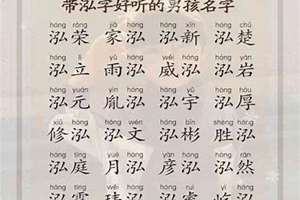 带泓字好听的男孩名字
hóng róng jiā hóng hóng xīn hóng chǔ
泓荣 家泓 泓新 泓楚
hóng lì yǔ hóng wēi hóng hóng yán
泓立 雨泓 威泓 泓岩
hóng yuán yìn hóng hóng yǔ hóng hòu
泓元 胤泓 泓宇 泓厚
xiū hóng hóng wén hóng bīn shèng hóng
修泓 泓文 泓彬 胜泓
hóng tíng yuè hóng yàn hóng hóng rán
泓庭 月泓 彦泓 泓然
hóng wěi hóng hóng ruì lín hóng
泓 玮泓 泓睿 临泓